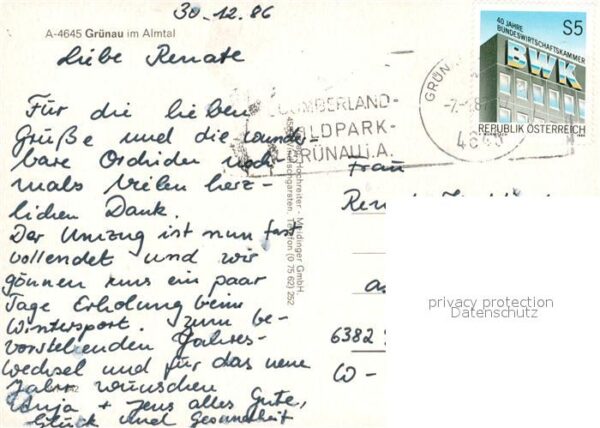 30.12.86
A-4645 Grünau im Almtal
Liebe Renate
Für die lieben
Grüße und die wunder-
bare Orchidee noch
mals vielen herz-
lichen Dank.
Der Umzug ist nun fast
vollendet und wir
gönnen uns ein paar
Tage Erholung beim
Wintersport. Zum be-
vorstehenden Jahres-
wechsel und für das neue
Jahr wünschen
Anja + Jens alles Gute,
Glück und Gesundheit
Hochreiter - Meidinger GmbH.
Telefon (0 75 62) 252
CUMBERLAND-
WILDPARK-
GRÜNAU i.A.
GRÜN
4645
40 JAHRE
BUNDESWIRTSCHAFTSKAMMER
S5
BWK
REPUBLIK ÖSTERREICH
Frau
6382
W-
privacy protection
Datenschutz